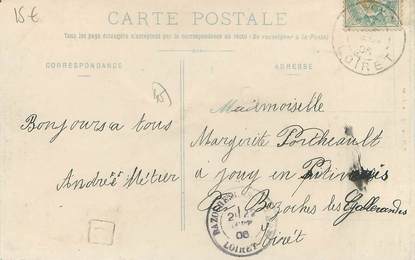 15€
CARTE POSTALE
Tous les pays étrangers n'acceptent pas la correspondance au recto (Se renseigner à la Poste)
CORRESPONDANCE
ADRESSE
Bonjours a tous
André Métier
Mademoiselle
Margirite Portheault
à Jouy en Pitivrais
Par Bazoches les Gallerandes
Loiret
LOIRET
06
BAZOCHES
LOIRET
06